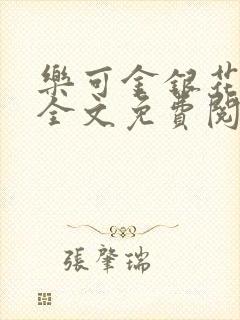 樂可金銀花
全文免費閱
張肇瑞